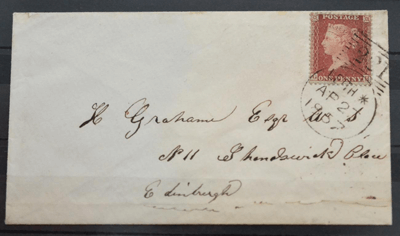 POSTAGE
ONE PENNY
AP 21
1857
H Grahame Esqr W S
No 11 Shandswick Place
Edinburgh